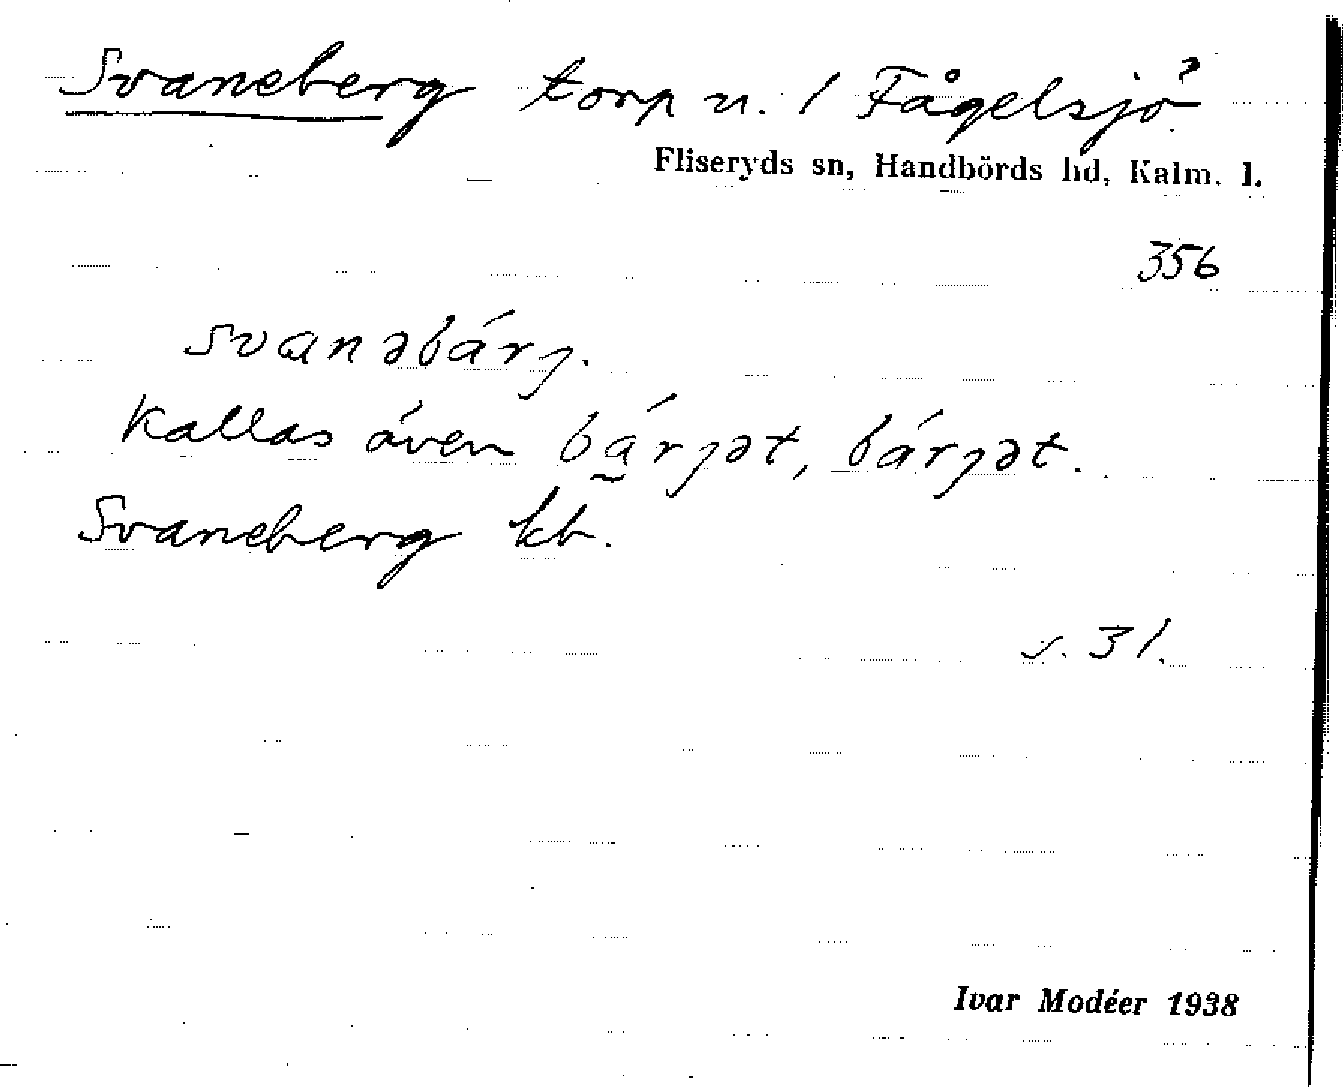 Svaneberg torp u. 1 Fågelsjö
Fliseryds sn, Handbörds hd, Kalm. l.
356
svanəbárȷ.
Kallas även bá̰rȷət, bárȷət.
Svaneberg kb.
s. 31.
Ivar Modéer 1938